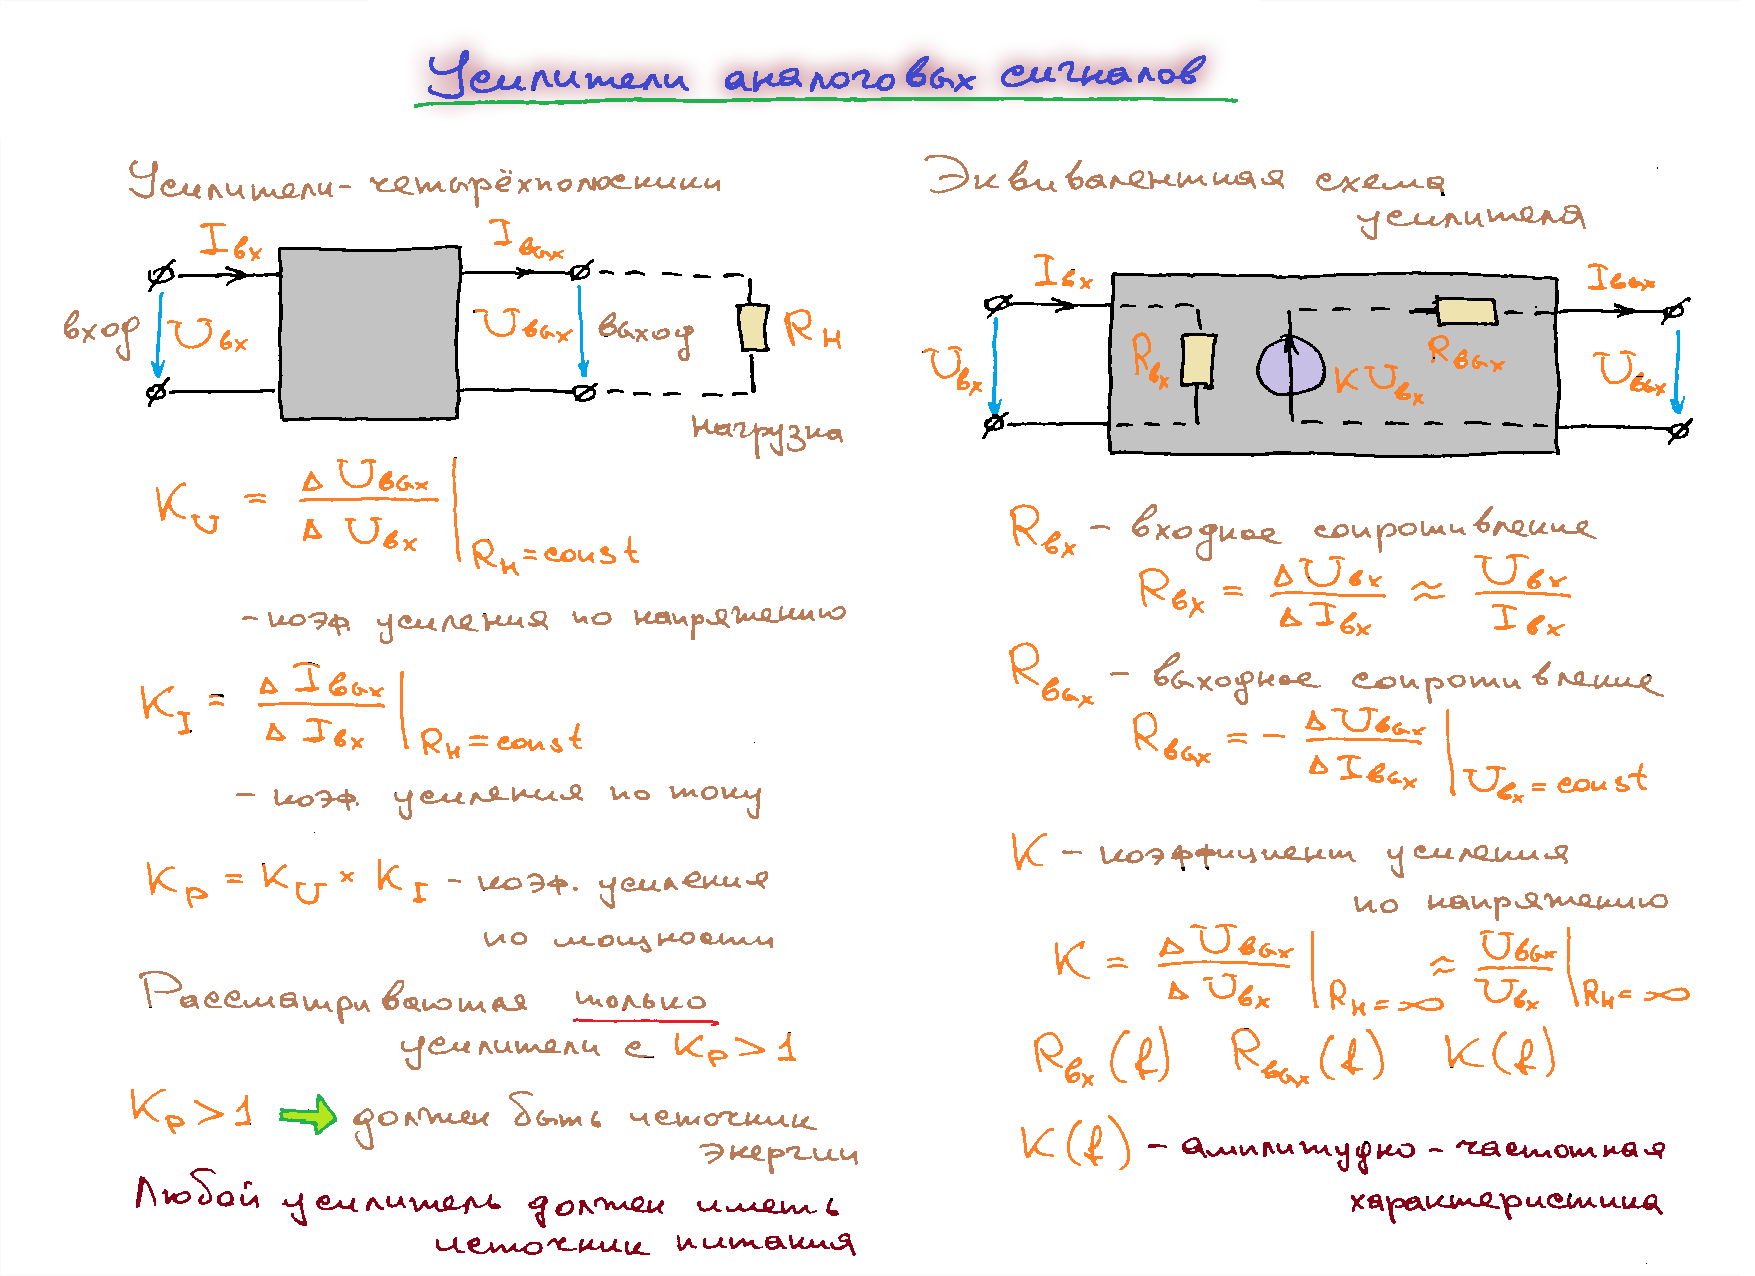 Усилители аналоговых сигналов
Усилители-четырёхполюсники
Iвх
Iвых
вход
Uвх
Uвых
выход
Rн
нагрузка
KU = ΔUвых / ΔUвх | Rн = const
- коэф усиления по напряжению
KI = ΔIвых / ΔIвх | Rн = const
- коэф. усиления по току
KP = KU × KI - коэф. усиления
по мощности
Рассматриваются только
усилители с KP > 1
KP > 1 ➡ должен быть источник
энергии
Любой усилитель должен иметь
источник питания
Эквивалентная схема
усилителя
Iвх
Iвых
Uвх
Rвх
K Uвх
Rвых
Uвых
Rвх - входное сопротивление
Rвх = ΔUвх / ΔIвх ≈ Uвх / Iвх
Rвых - выходное сопротивление
Rвых = - ΔUвых / ΔIвых | Uвх = const
K - коэффициент усиления
по напряжению
K = ΔUвых / ΔUвх | Rн = ∞ ≈ Uвых / Uвх | Rн = ∞
Rвх(f) Rвых(f) K(f)
K(f) - амплитудно - частотная
характеристика